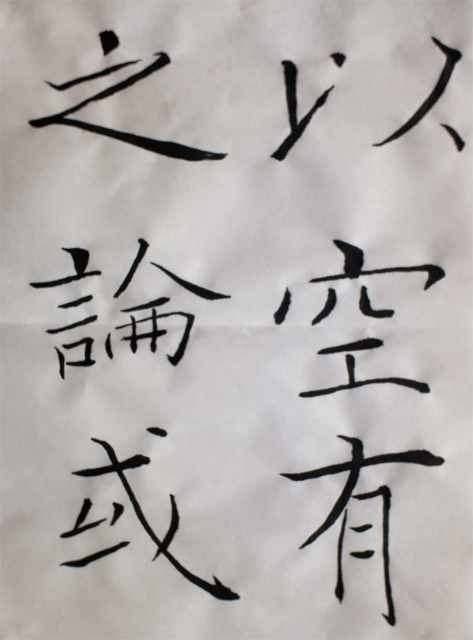 以空有
之論或